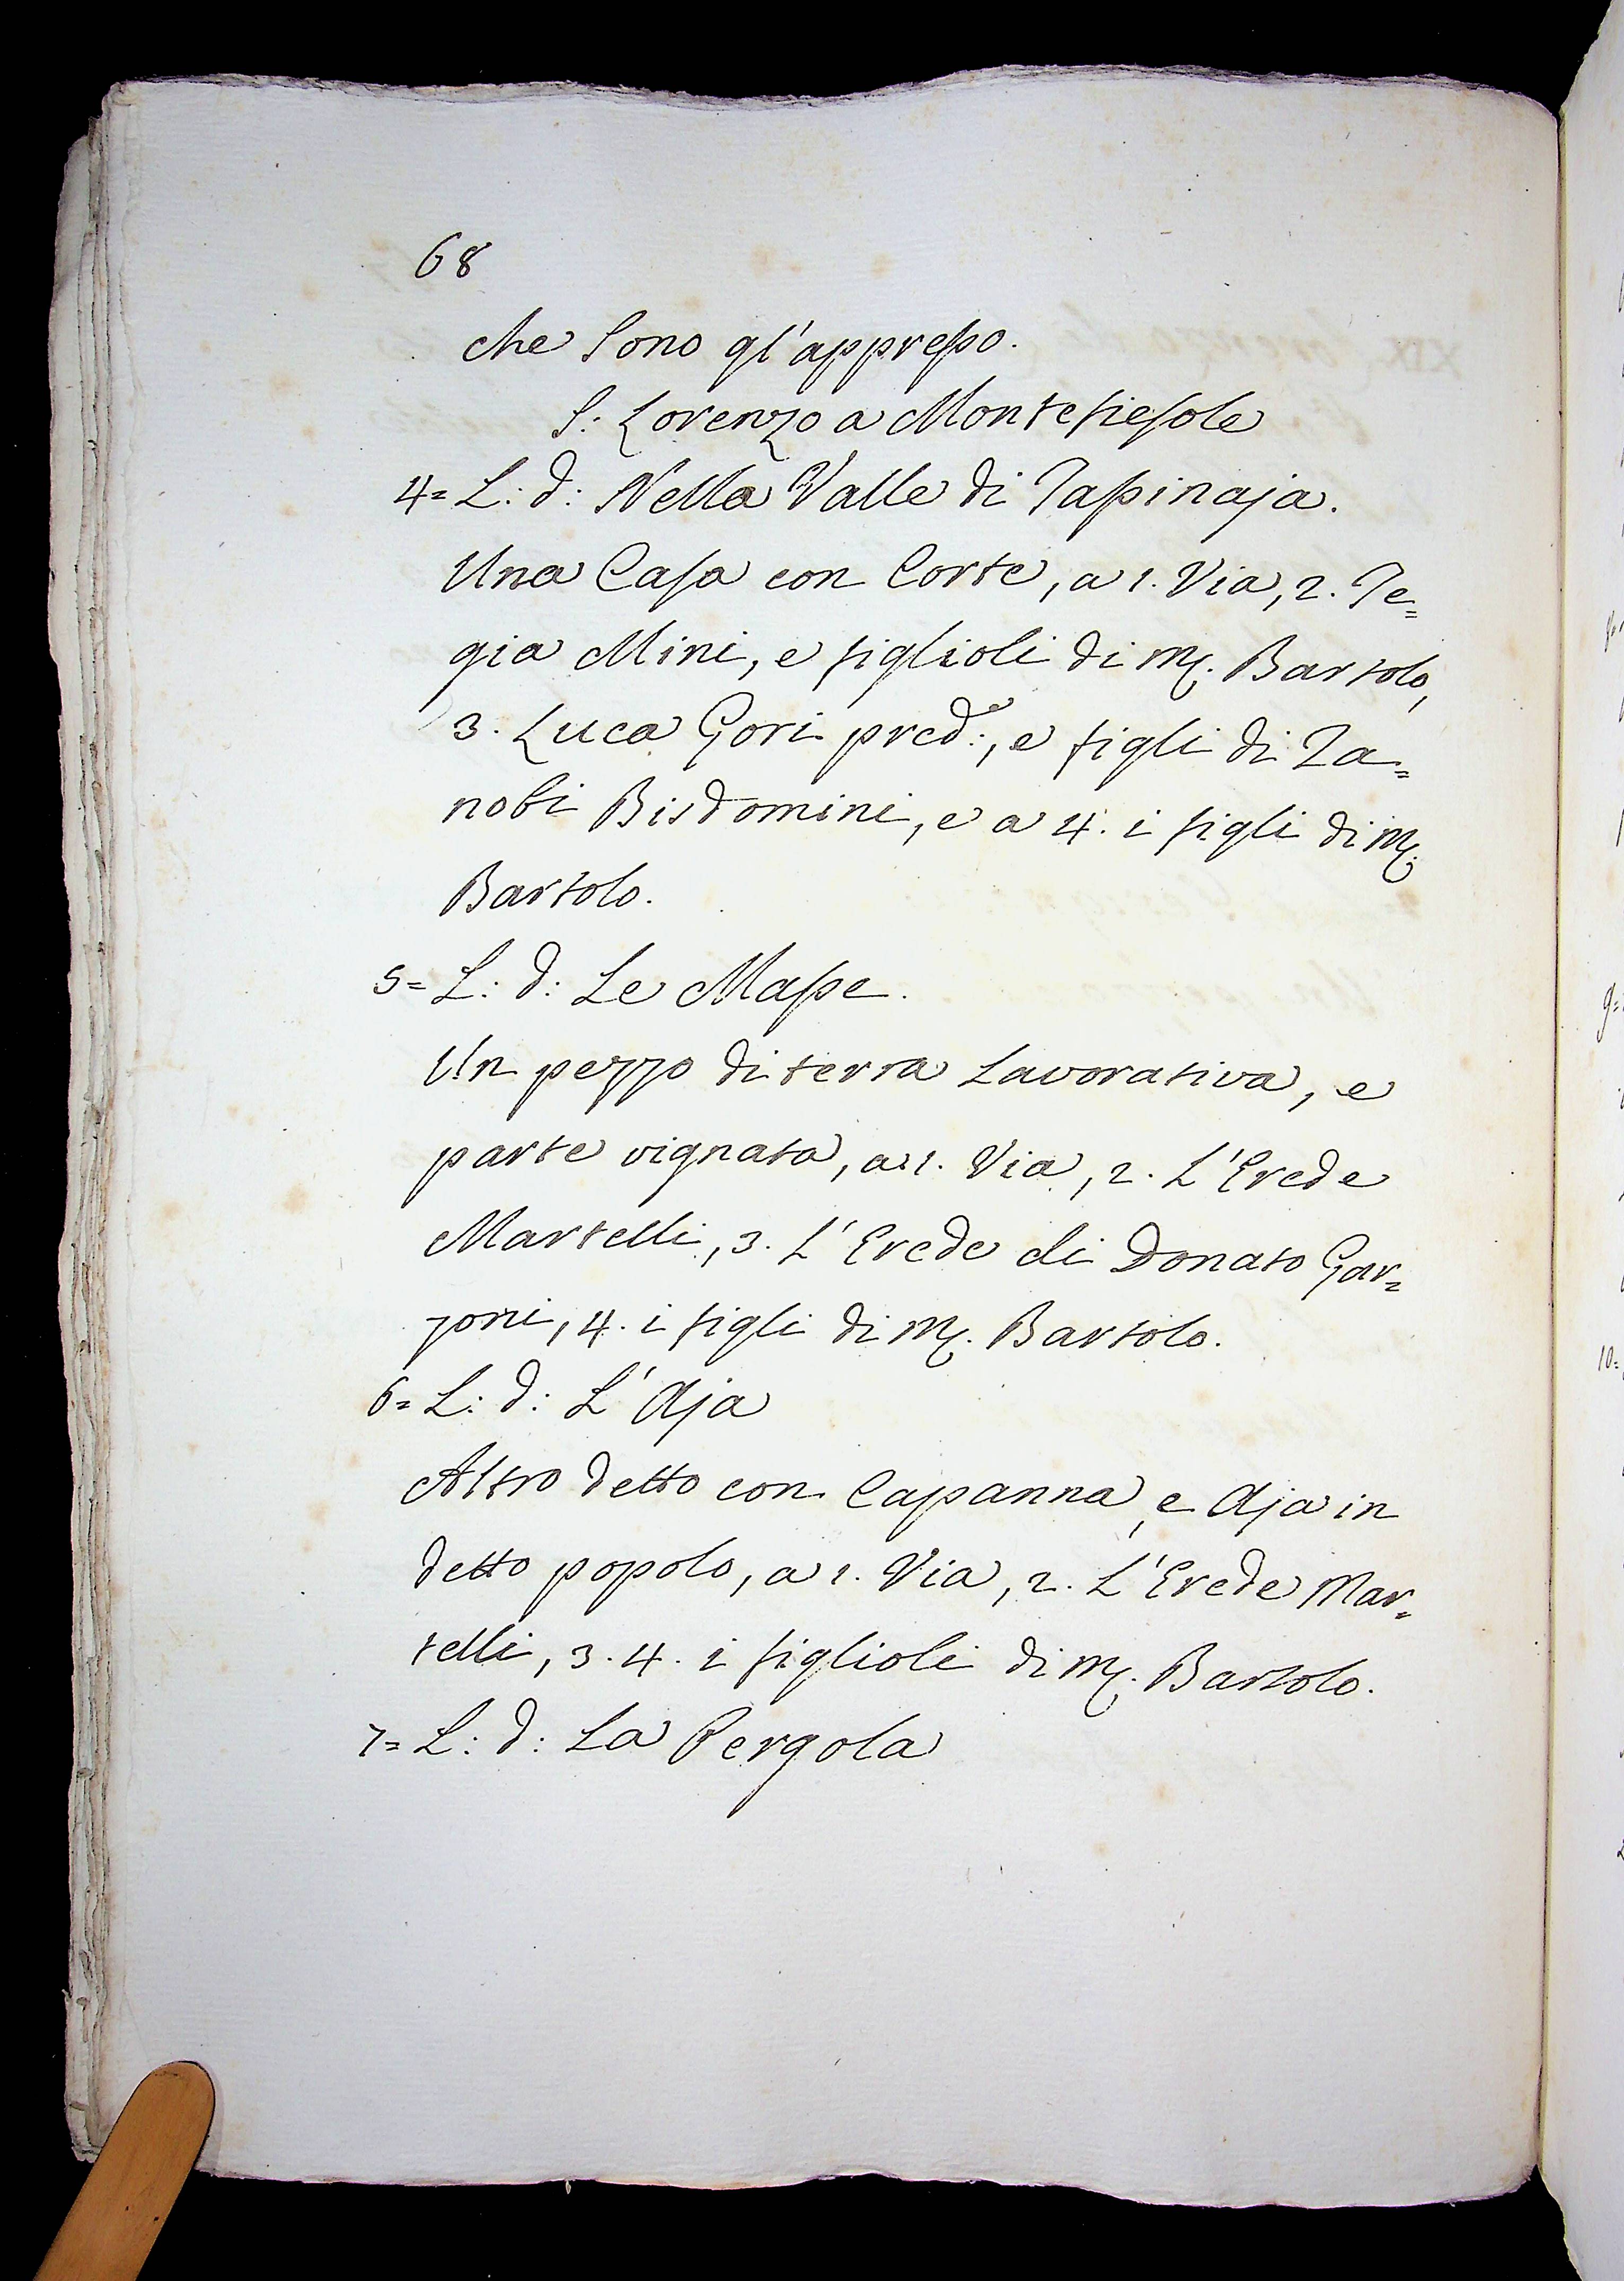 68
che Sono gl'appresso.
S: Lorenzo a Montefiesole
4= L: d: Nella Valle di Tassinaja.
Una Casa con Corte, a 1. Via, 2. Te=
gia Mini, e figlioli di M. Bartolo,
3. Luca Gori pred:e, e figli di Za=
nobi Bisdomini, e a 4. i figli di M.
Bartolo.
5= L: d: Le Masse.
Un pezzo di terra Lavorativa, e
parte vignata, a 1. Via, 2. L'Erede
Martelli, 3. L'Erede di Donato Gar=
zoni, 4. i figli di M. Bartolo.
6= L: d: L'Aja
Altro detto con Capanna, e Aja in
detto popolo, a 1. Via, 2. L'Erede Mar=
telli, 3. 4. i figlioli di M. Bartolo.
7= L: d: La Pergola
9=
10=